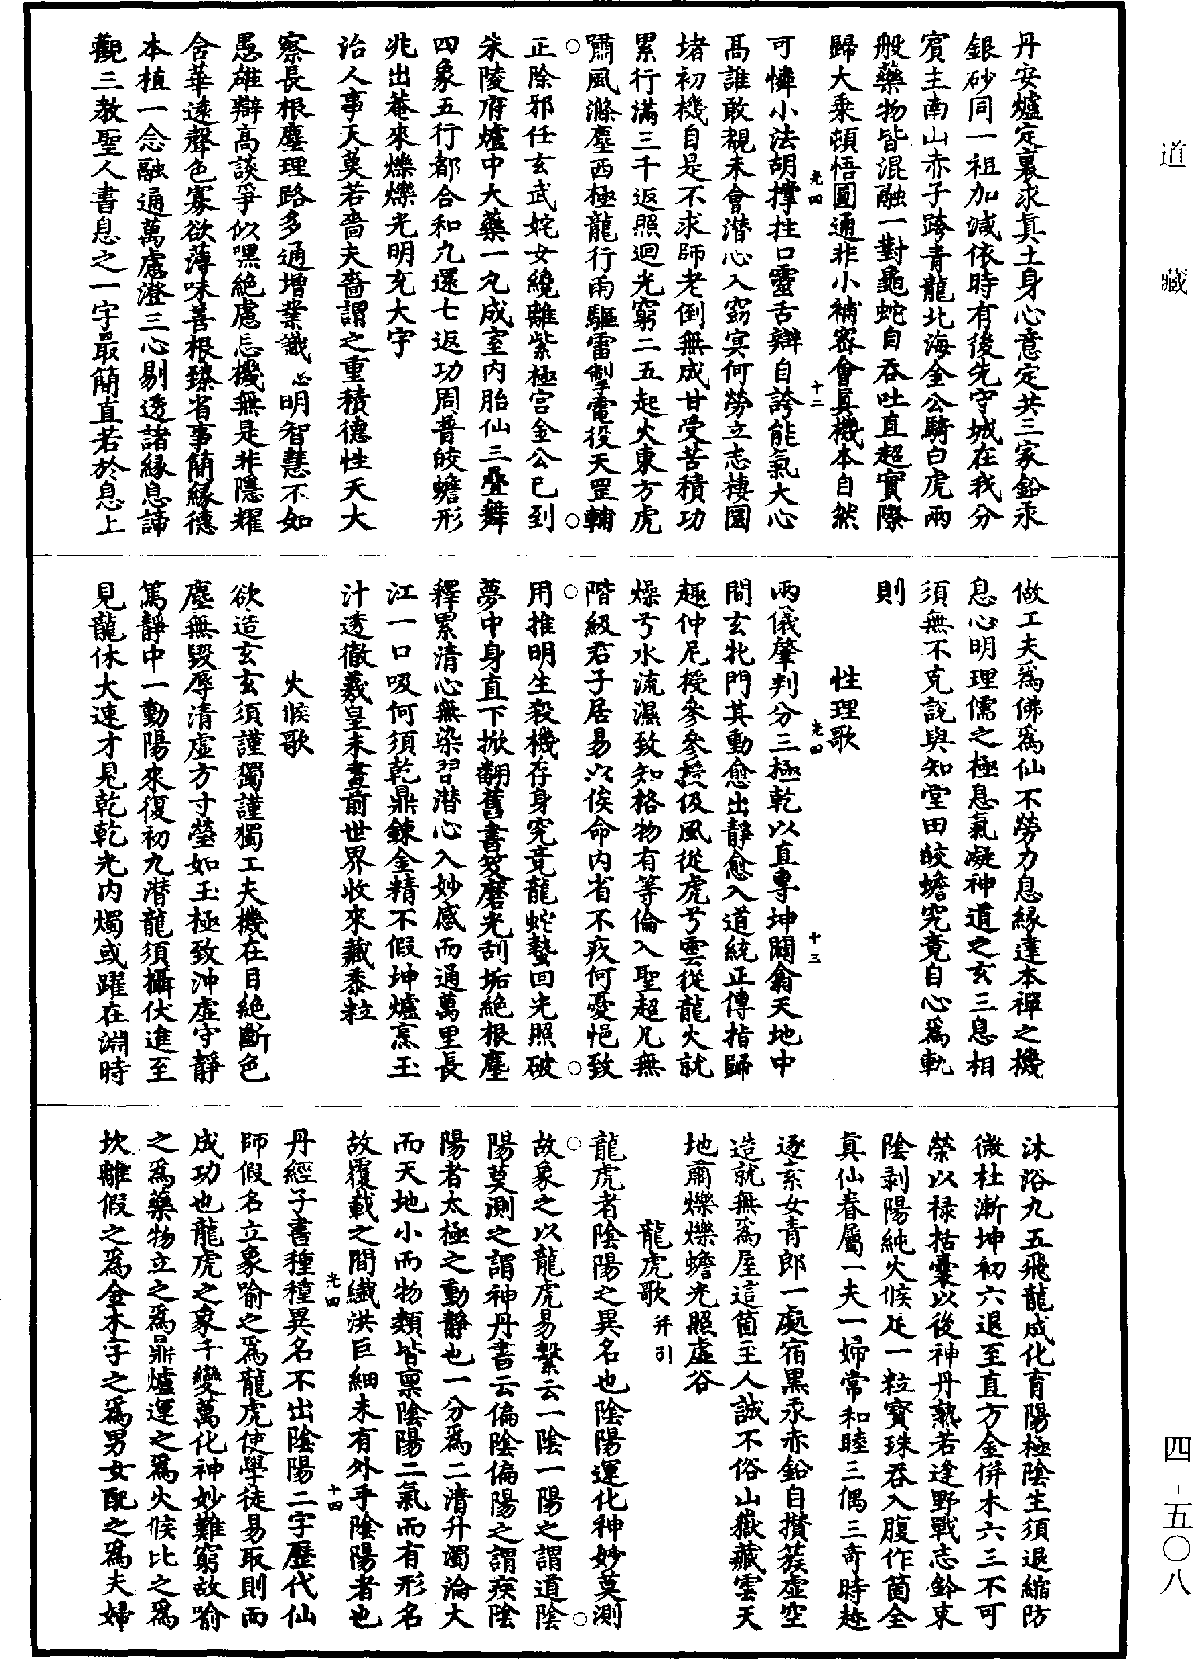 道藏
四-五〇八
丹安爐定裏求真土身心意定共三家鉛汞
銀砂同一祖加減依時有後先守城在我分
賓主南山赤子跨青龍北海金公騎白虎兩
般藥物皆混融一對龜蛇自吞吐直超實際
歸大乘頓悟圓通非小補密會真機本自然
光四 十二
可憐小法胡撐拄口靈舌辯自誇能氣大心
高誰敢覩未會潜心入窈冥何勞立志棲園
堵初機自是不求師老倒無成甘受苦積功
累行滿三千返照迴光窮二五起火東方虎
嘯風滌塵西極龍行雨驅雷掣電役天罡輔
正除邪任玄武姹女纔離紫極宮金公已到
朱陵府爐中大藥一丸成室内胎仙三疊舞
四象五行都合和九還七返功周普皎蟾形
兆出菴來爍爍光明充大宇
治人事天莫若嗇夫嗇謂之重積德性天大
察長根塵理路多通增業識必明智慧不如
愚雄辯高談爭似嘿絶慮忘機無是非隱耀
含華遠聲色寡欲薄味善根臻省事簡緣德
本植一念融通萬慮澄三心剔透諸緣息諦
觀三教聖人書息之一字最簡直若於息上
做工夫爲佛爲仙不勞力息緣達本禪之機
息心明理儒之極息氣凝神道之玄三息相
須無不克說與知堂田皎蟾究竟自心爲軌
則
性理歌
兩儀肇判分三極乾以直專坤闢翕天地中
光四 十三
間玄牝門其動愈出靜愈入道統正傳指歸
趣仲尼授參參授伋風從虎兮雲從龍火就
燥兮水流濕致知格物有等倫入聖超凡無
階級君子居易以俟命内省不疚何憂悒致
用推明生殺機存身究竟龍蛇蟄回光照破
夢中身直下掀翻舊書笈磨光刮垢絶根塵
釋累清心無染習潜心入妙感而通萬里長
江一口吸何須乾鼎鍊金精不假坤爐烹玉
汁透徹羲皇未畫前世界收來藏黍粒
火候歌
欲造玄玄須謹獨謹獨工夫機在目絶斷色
塵無毀辱清虚方寸瑩如玉極致沖虚守靜
篤靜中一動陽來復初九潜龍須攝伏進至
見龍休大速才見乾乾光内燭或躍在淵時
沐浴九五飛龍成化育陽極陰生須退縮防
微杜漸坤初六退至直方金併木六三不可
榮以禄括囊以後神丹熟若逢野戰志鈴束
陰剥陽純火候足一粒寶珠吞入腹作箇全
真仙眷屬一夫一婦常和睦三偶三奇時趁
逐素女青郎一處宿黑汞赤鉛自攢蔟虚空
造就無爲屋這箇主人誠不俗山嶽藏雲天
地肅爍爍蟾光照虚谷
龍虎歌并引
龍虎者陰陽之異名也陰陽運化神妙莫測
故象之以龍虎易繫云一陰一陽之謂道陰
陽莫測之謂神丹書云偏陰偏陽之謂疾陰
陽者太極之動靜也一分爲二清升濁淪大
而天地小而物類皆禀陰陽二氣而有形名
故覆載之間纖洪巨細未有外乎陰陽者也
光四 十四
丹經子書種種異名不出陰陽二字歷代仙
師假名立象喻之爲龍虎使學徒易取則而
成功也龍虎之象千變萬化神妙難窮故喻
之爲藥物立之爲鼎爐運之爲火候比之爲
坎離假之爲金木字之爲男女配之爲夫婦